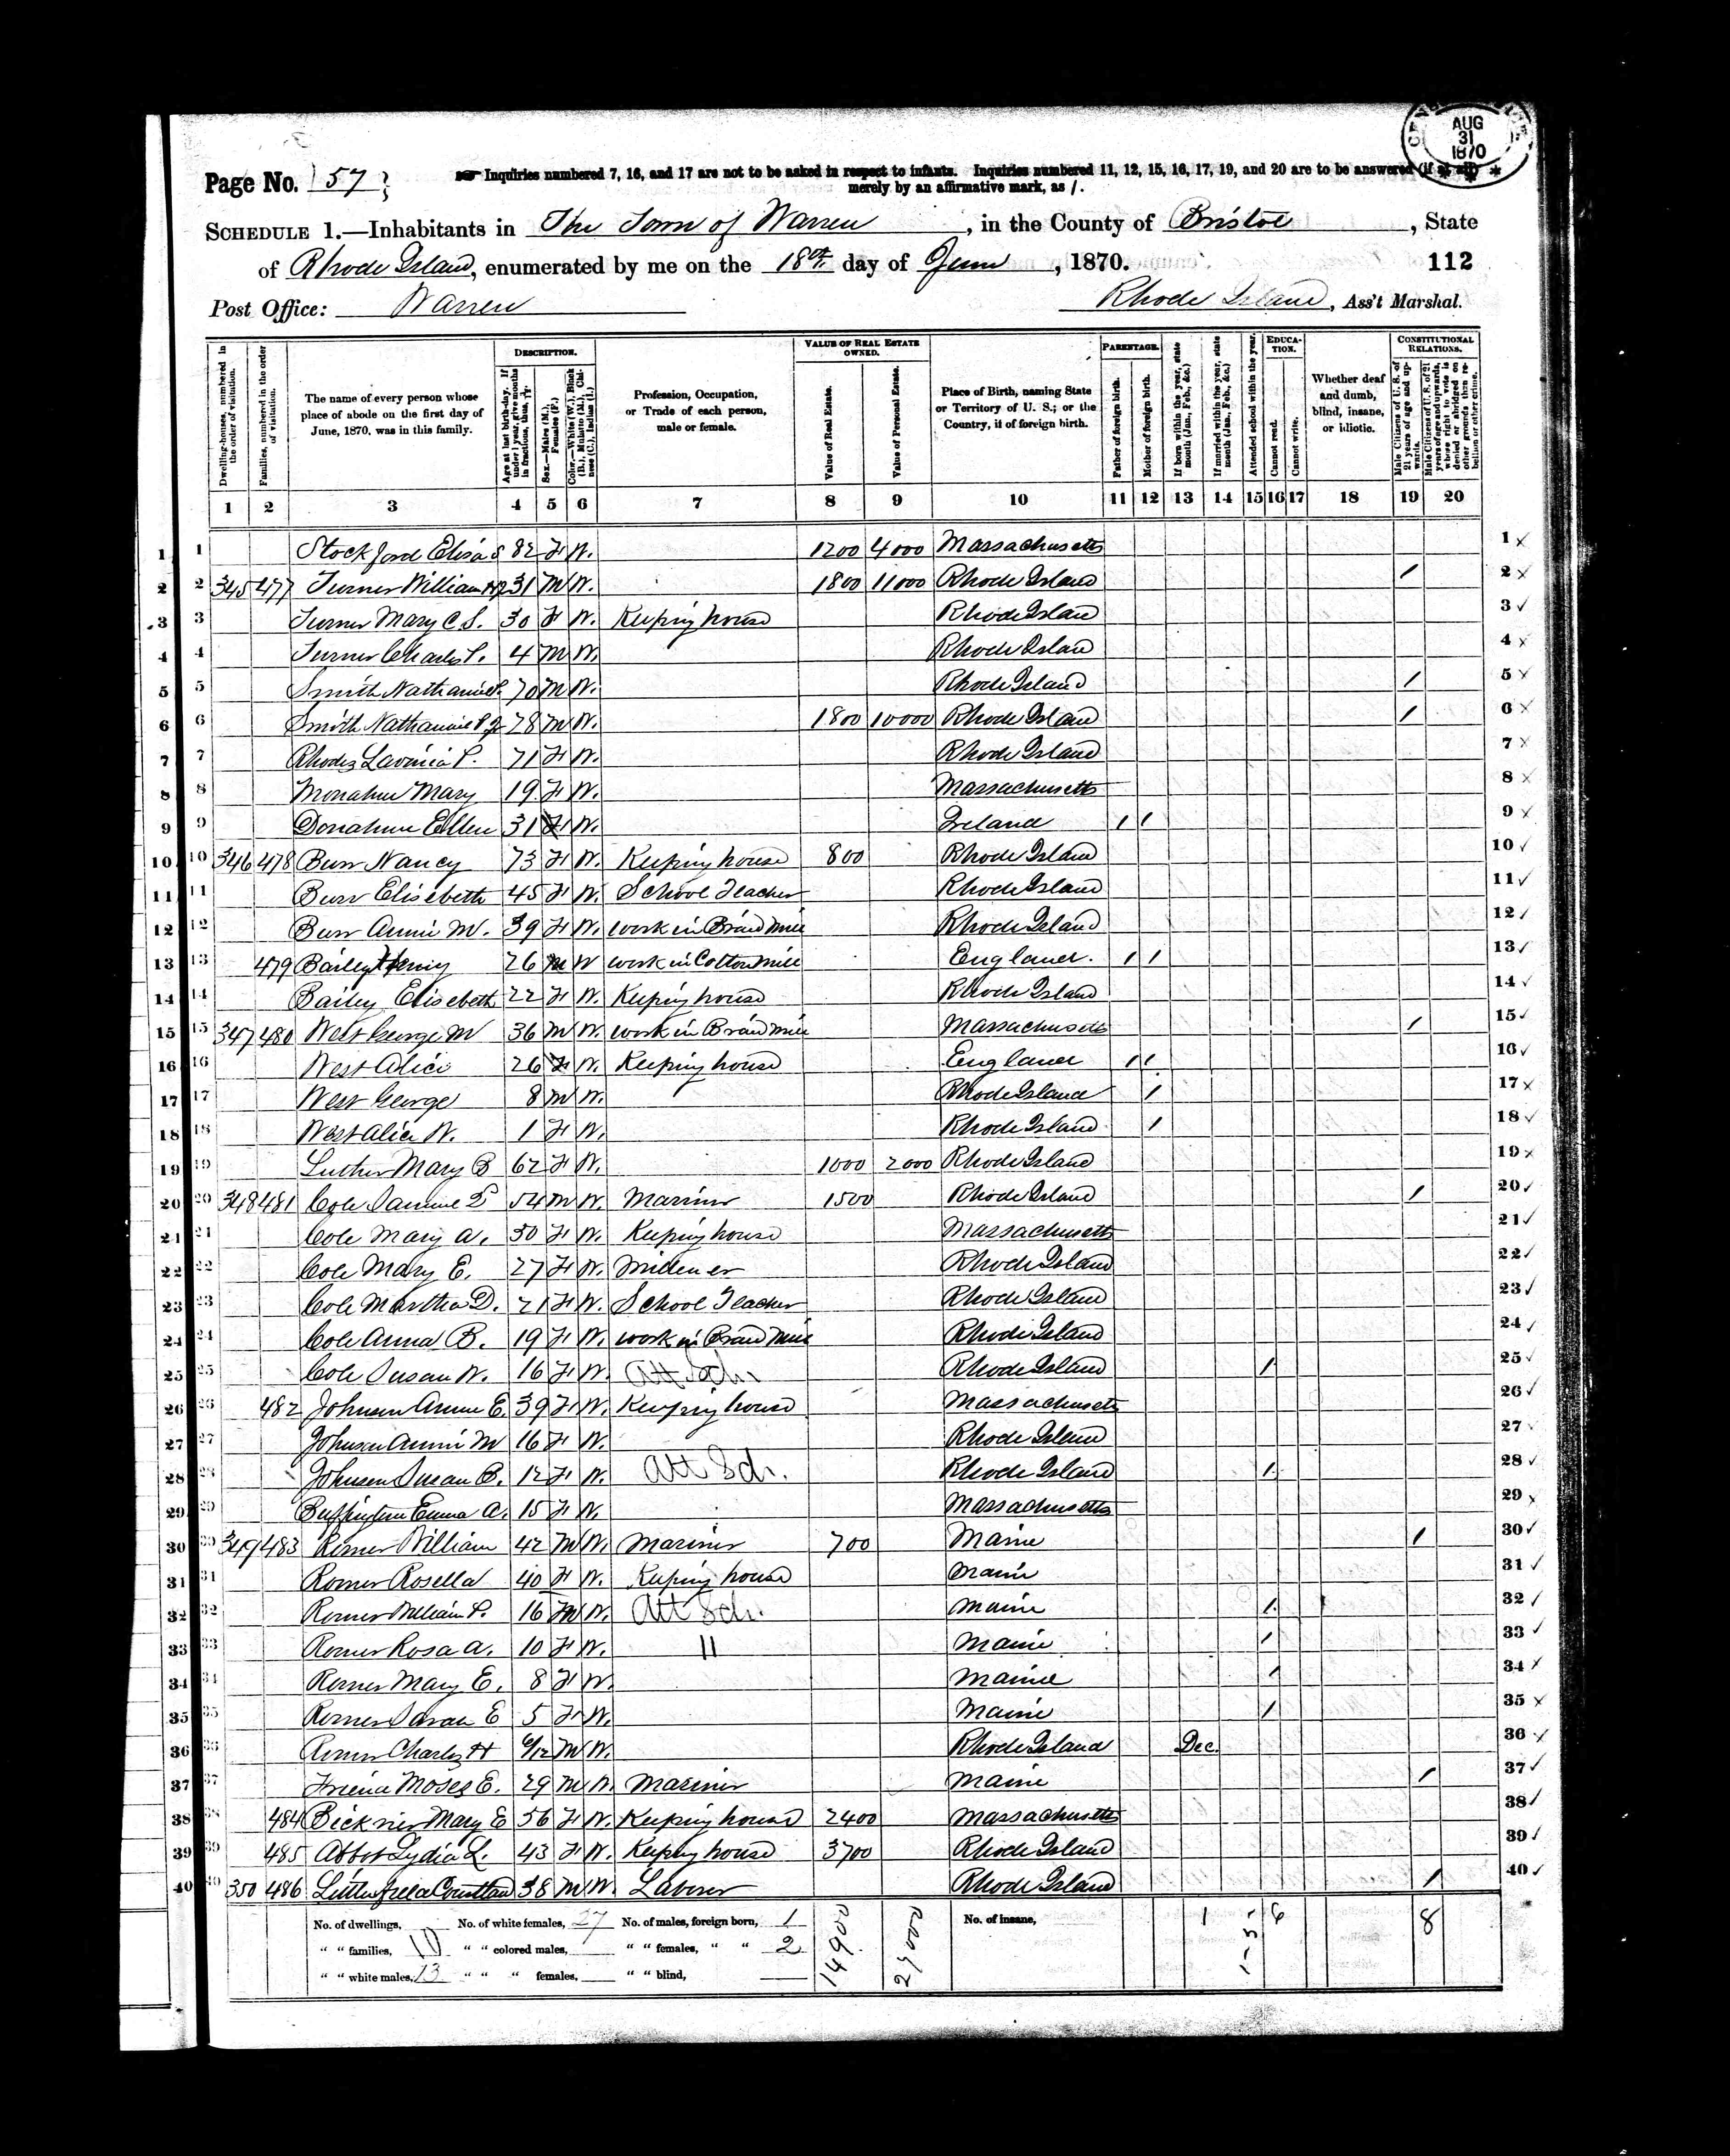 AUG
31
1870
Page No. 57
Inquiries numbered 7, 16, and 17 are not to be asked in respect to infants. Inquiries numbered 11, 12, 15, 16, 17, 19, and 20 are to be answered (if at all)
merely by an affirmative mark, as /.
SCHEDULE 1.—Inhabitants in The Town of Warren, in the County of Bristol, State
of Rhode Island, enumerated by me on the 18th day of June, 1870. 112
Post Office: Warren Rhode Island, Ass't Marshal.
Dwelling-houses, numbered in the order of visitation.
Families, numbered in the order of visitation.
The name of every person whose place of abode on the first day of June, 1870, was in this family.
DESCRIPTION.
Age at last birth-day. If under 1 year, give months in fractions, thus,
Sex.—Males (M.), Females (F.)
Color.—White (W.), Black (B.), Mulatto (M.), Chinese (C.), Indian (I.)
Profession, Occupation, or Trade of each person, male or female.
VALUE OF REAL ESTATE OWNED.
Value of Real Estate.
Value of Personal Estate.
Place of Birth, naming State or Territory of U. S.; or the Country, if of foreign birth.
PARENTAGE.
Father of foreign birth.
Mother of foreign birth.
If born within the year, state month (Jan., Feb., &c.)
If married within the year, state month (Jan., Feb., &c.)
Attended school within the year.
EDUCATION.
Cannot read.
Cannot write.
Whether deaf and dumb, blind, insane, or idiotic.
CONSTITUTIONAL RELATIONS.
Male Citizens of U. S. of 21 years of age and upwards.
Male Citizens of U. S. of 21 years of age and upwards, whose right to vote is denied or abridged on other grounds than rebellion or other crime.
1 2 3 4 5 6 7 8 9 10 11 12 13 14 15 16 17 18 19 20
1 1 Stockford Eliza S 82 F W. 1200 4000 Massachusetts 1
2 2 345 477 Turner William 31 M W. 1800 11000 Rhode Island / 2
3 3 Turner Mary C S. 30 F W. Keeping house Rhode Island 3
4 4 Turner Charles P. 4 M W. Rhode Island 4
5 5 Smith Nathaniel 70 M W. Rhode Island / 5
6 6 Smith Nathaniel P Jr 78 M W. 1800 10000 Rhode Island / 6
7 7 Rhodes Lavinia P. 71 F W. Rhode Island 7
8 8 Monahue Mary 19 F W. Massachusetts 8
9 9 Donahue Ellen 31 F W. Ireland / / 9
10 10 346 478 Burr Nancy 73 F W. Keeping house 800 Rhode Island 10
11 11 Burr Elisebeth 45 F W. School Teacher Rhode Island 11
12 12 Burr Annie M. 39 F W. work in Braid Mill Rhode Island 12
13 13 479 Bailey Henry 26 M W work in Cotton Mill England. / / 13
14 14 Bailey Elisebeth 22 F W. Keeping house Rhode Island 14
15 15 347 480 West George M 36 M W. work in Braid Mill Massachusetts / 15
16 16 West Alice 26 F W. Keeping house England / / 16
17 17 West George 8 M W. Rhode Island / 17
18 18 West Alice W. 1 F W. Rhode Island / 18
19 19 Luther Mary B 62 F W. 1000 2000 Rhode Island 19
20 20 348 481 Cole Samuel T 54 M W. Mariner 1500 Rhode Island / 20
21 21 Cole Mary A. 50 F W. Keeping house Massachusetts 21
22 22 Cole Mary E. 27 F W. Millener Rhode Island 22
23 23 Cole Martha D. 21 F W. School Teacher Rhode Island 23
24 24 Cole Anna B. 19 F W. work in Braid Mill Rhode Island 24
25 25 Cole Susan W. 16 F W. Att Sch. Rhode Island / 25
26 26 482 Johnson Annie E. 39 F W. Keeping house Massachusetts 26
27 27 Johnson Annie M 16 F W. Rhode Island 27
28 28 Johnson Susan B. 12 F W. Att Sch. Rhode Island / 28
29 29 Buffington Emma A. 15 F W. Massachusetts 29
30 30 349 483 Romer William 42 M W. Mariner 700 Maine / 30
31 31 Romer Rosella 40 F W. Keeping house Maine 31
32 32 Romer William P. 16 M W. Att Sch. Maine / 32
33 33 Romer Rosa A. 10 F W. 11 Maine / 33
34 34 Romer Mary E. 8 F W. Maine / 34
35 35 Romer Sarah E 5 F W. Maine / 35
36 36 Romer Charles H 6/12 M W. Rhode Island Dec. 36
37 37 Moses E. 29 M W. Mariner Maine / 37
38 38 484 Bicknir Mary E 56 F W. Keeping house 2400 Massachusetts 38
39 39 485 Abbot Lydia L. 43 F W. Keeping house 3700 Rhode Island 39
40 40 350 486 Littlefield Courtland 38 M W. Laborer Rhode Island / 40
No. of dwellings, No. of white females, 27 No. of males, foreign born, 1 14900 27000 No. of insane, 1 1-5- 6 8
" " families, 10 " " colored males, " " females, " " 2
" " white males, 13 " " " females, " " blind,